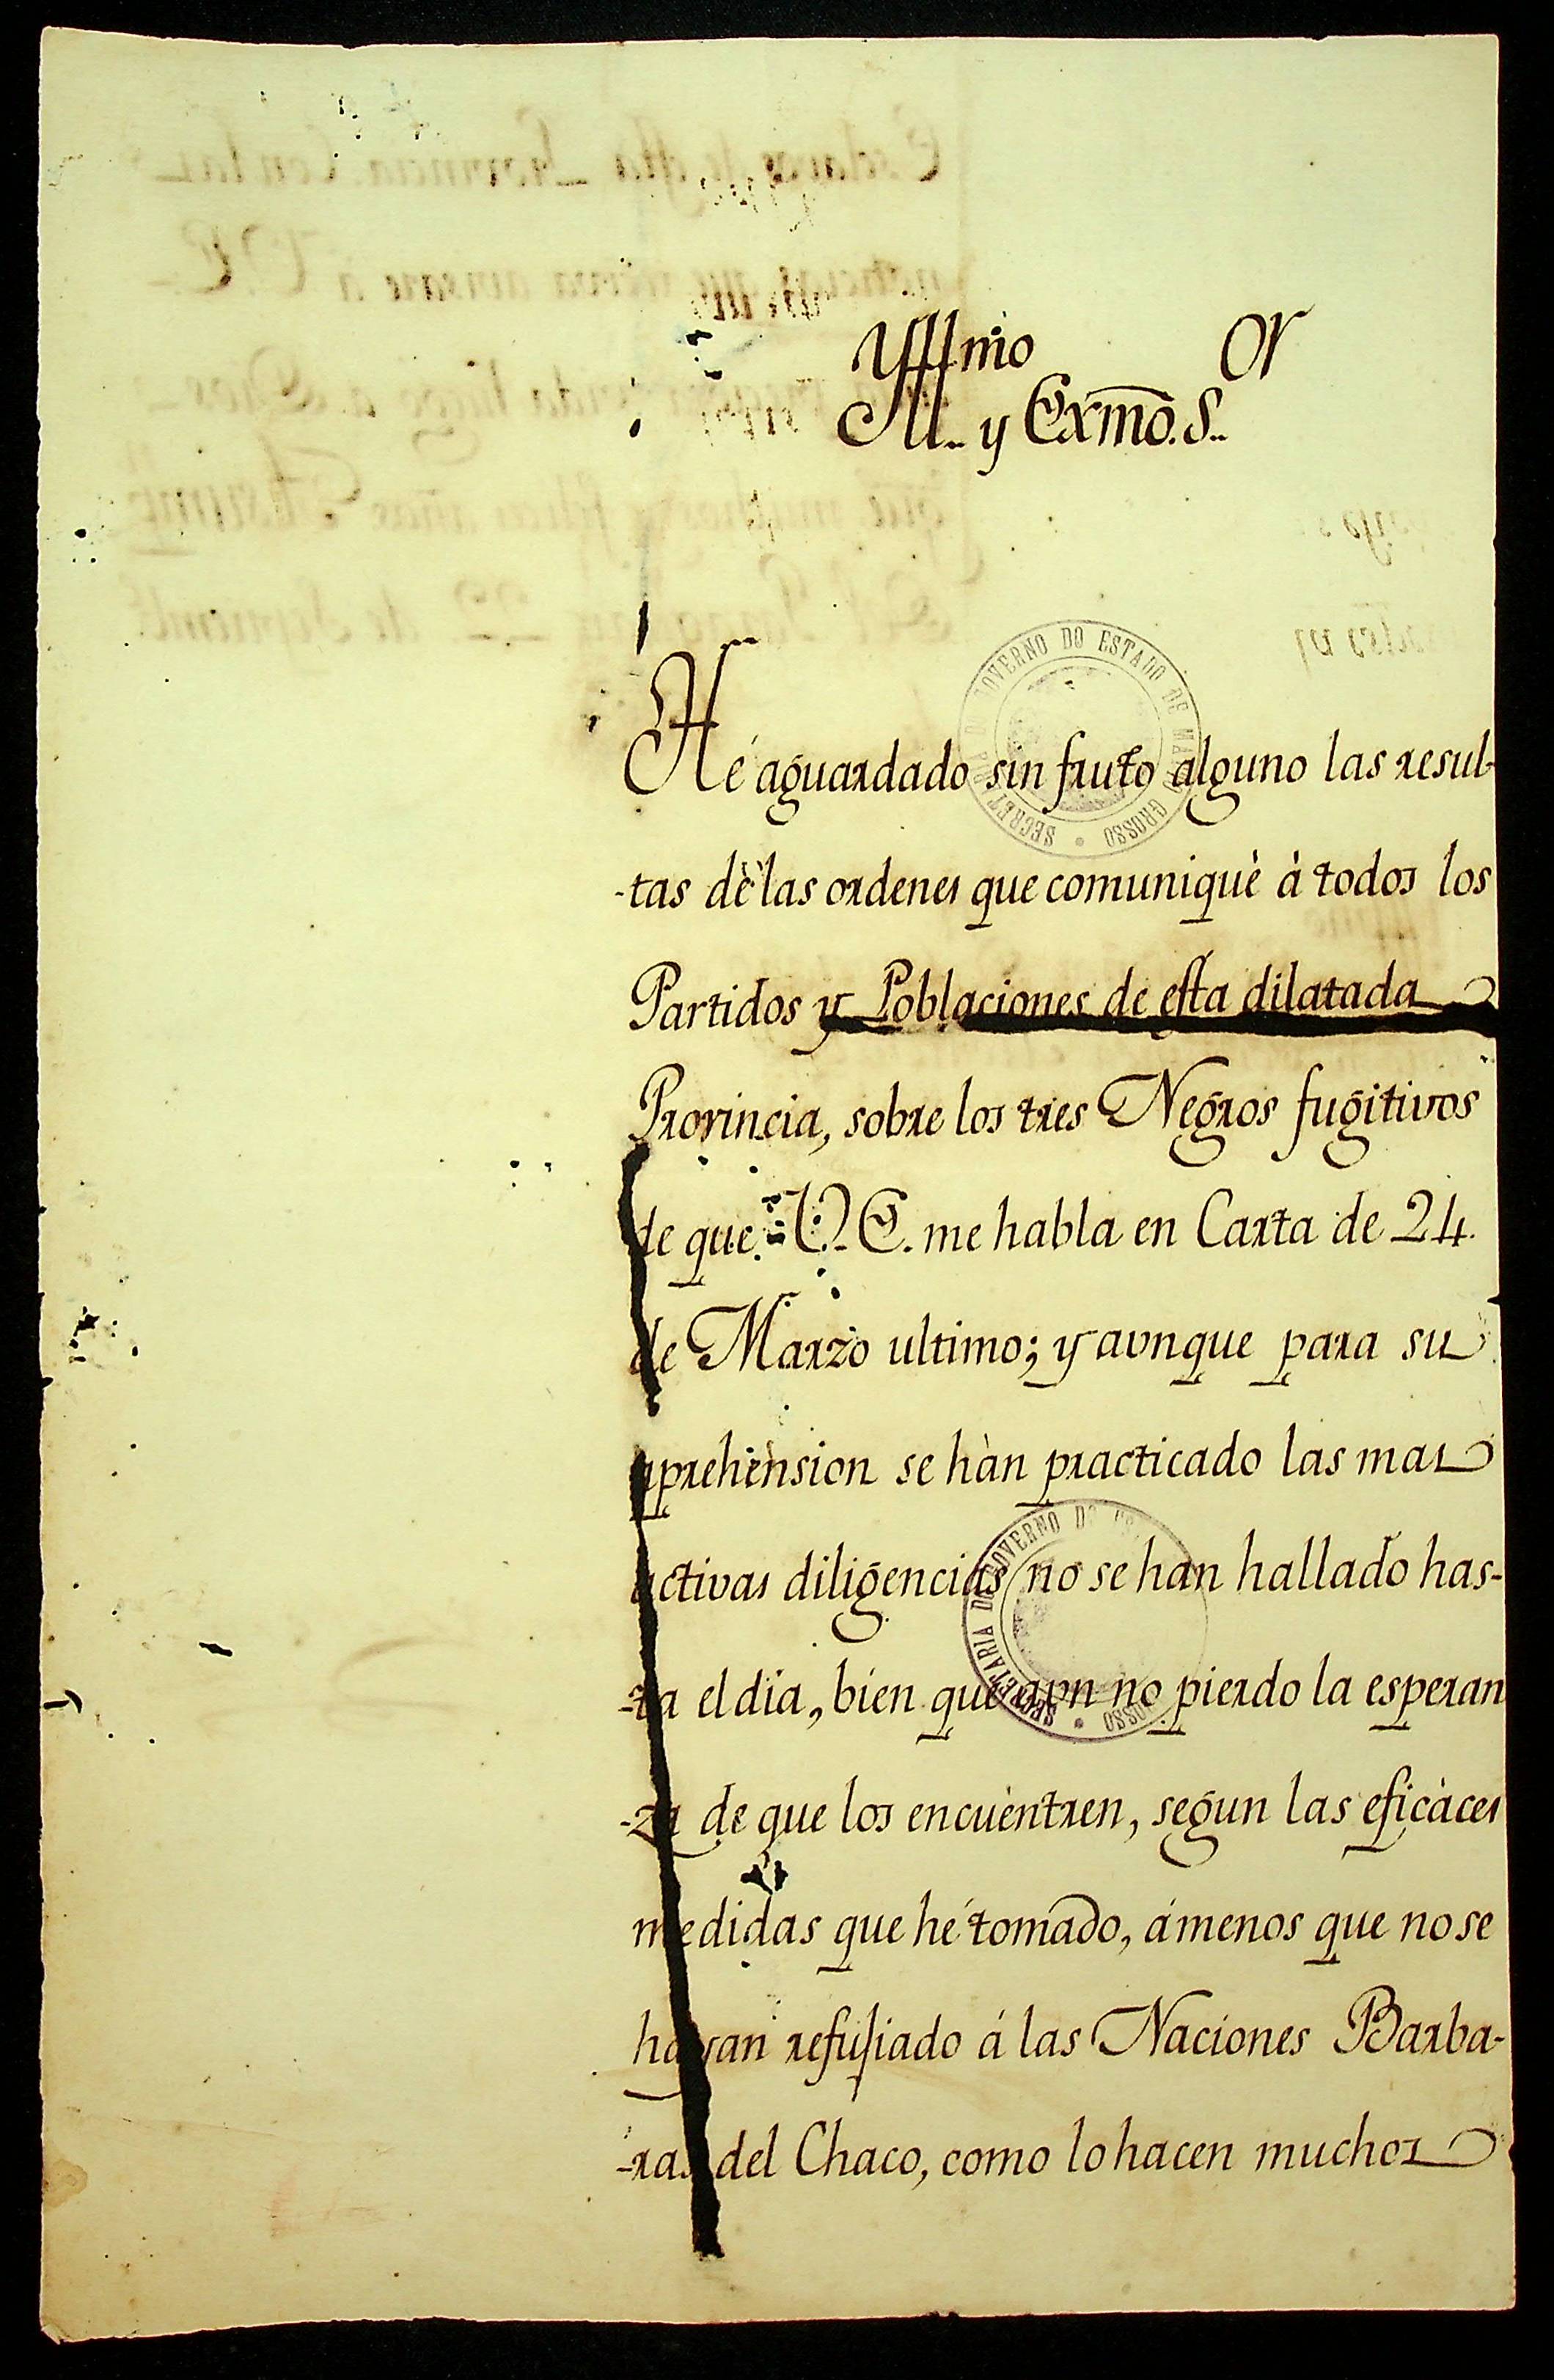 Yllmo
Ill.. y Exmo. S.. or
Hé aguardado sin fruto alguno las resul-
-tas dè las ordenes que comuniquè à todos los
Partidos y Poblaciones de esta dilatada
Provincia, sobre los tres Negros fugitivos
de que V. E. me habla en Carta de 24.
de Marzo ultimo; y aunque para su
aprehènsion se hàn practicado las mas
activas diligencias no se han hallado has-
-ta el dia, bien que aun no pierdo la esperan
-za de que los encuèntren, segun las eficàces
medidas que hé tomado, á menos que no se
hayan refujiado á las Naciones Barba-
-ras del Chaco, como lo hacen muchos
SECRETARIA DO GOVERNO DO ESTADO DE MATTO GROSSO
SECRETARIA DO GOVERNO DO ES GROSSO